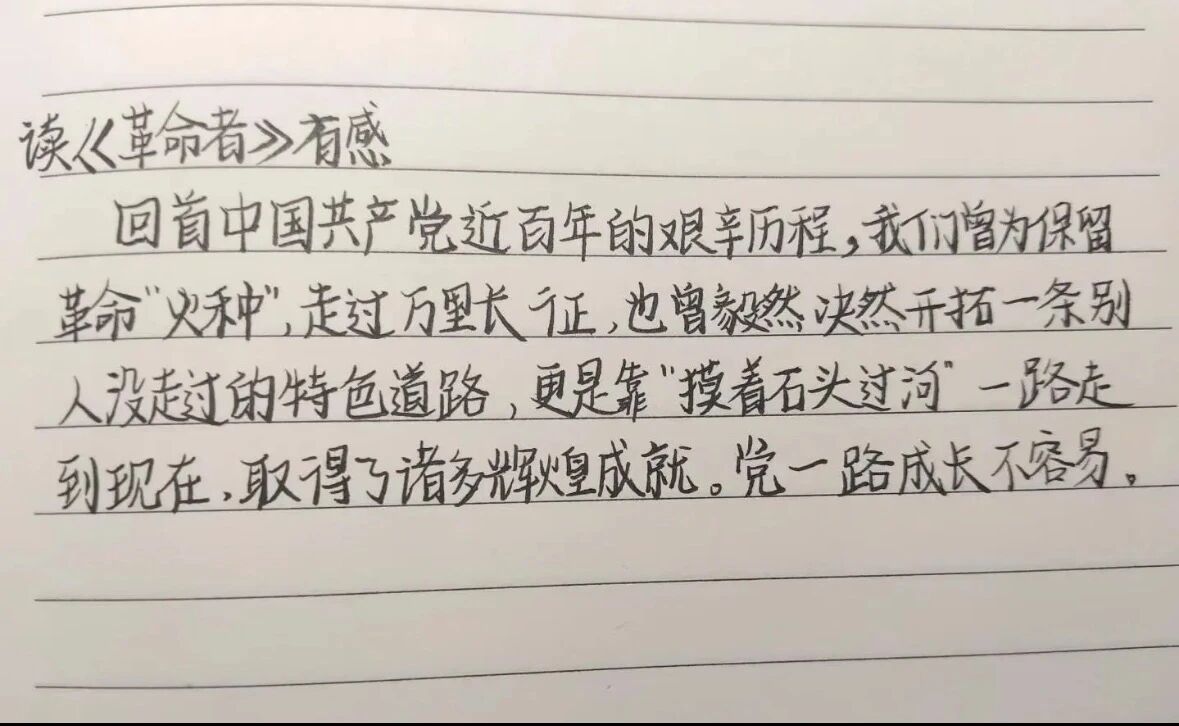 读《革命者》有感
回首中国共产党近百年的艰辛历程，我们曾为保留
革命“火种”，走过万里长征，也曾毅然决然开拓一条别
人没走过的特色道路，更是靠“摸着石头过河”一路走
到现在，取得了诸多辉煌成就。党一路成长不容易。